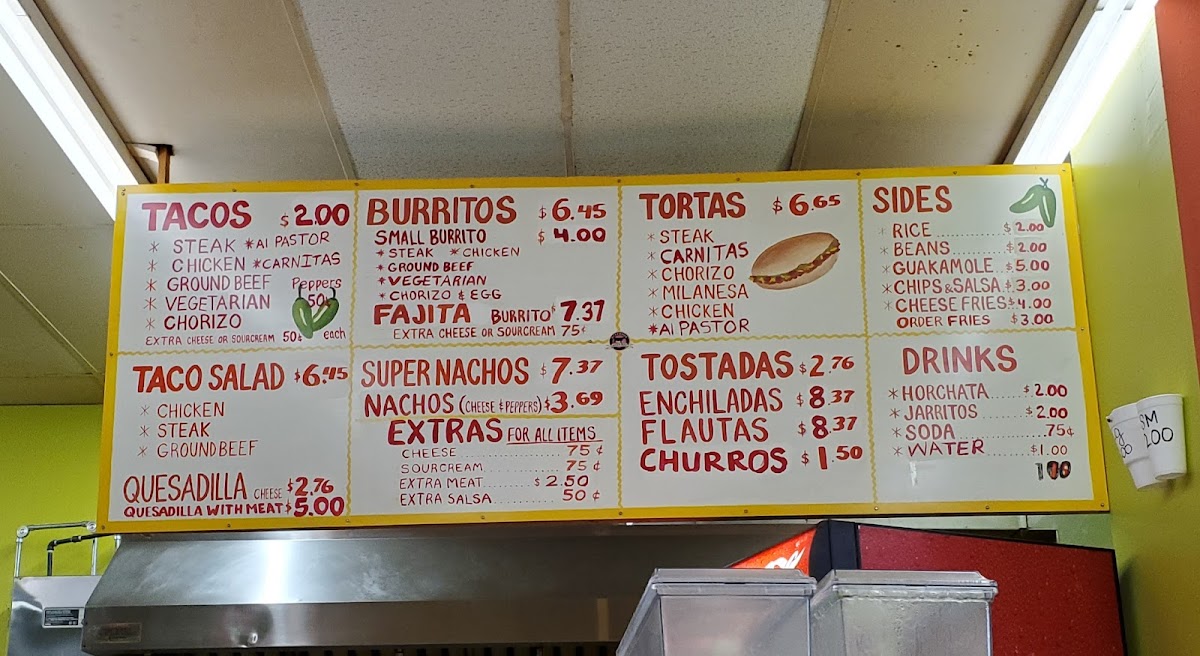 TACOS $2.00
* STEAK *Al PASTOR
* CHICKEN *CARNITAS
* GROUND BEEF Peppers
* VEGETARIAN 50¢
* CHORIZO
EXTRA CHEESE OR SOURCREAM 50¢ each
TACO SALAD $6.45
* CHICKEN
* STEAK
* GROUNDBEEF
QUESADILLA CHEESE $2.76
QUESADILLA WITH MEAT $5.00
BURRITOS $6.45
SMALL BURRITO $4.00
* STEAK * CHICKEN
* GROUND BEEF
* VEGETARIAN
* CHORIZO & EGG
FAJITA BURRITO $7.37
EXTRA CHEESE OR SOURCREAM 75¢
SUPER NACHOS $7.37
NACHOS (CHEESE & PEPPERS) $3.69
EXTRAS FOR ALL ITEMS
CHEESE 75¢
SOURCREAM 75¢
EXTRA MEAT $2.50
EXTRA SALSA 50¢
TORTAS $6.65
* STEAK
* CARNITAS
* CHORIZO
* MILANESA
* CHICKEN
*Al PASTOR
TOSTADAS $2.76
ENCHILADAS $8.37
FLAUTAS $8.37
CHURROS $1.50
SIDES
* RICE $2.00
* BEANS $2.00
* GUAKAMOLE $5.00
* CHIPS & SALSA $3.00
* CHEESE FRIES $4.00
ORDER FRIES $3.00
DRINKS
* HORCHATA $2.00
* JARRITOS $2.00
* SODA .75¢
* WATER $1.00
100
SM